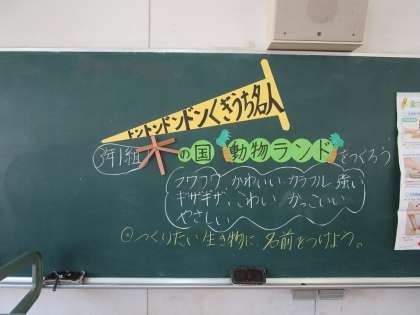 トントンドンドンくぎうち名人
3年1組 木の国 動物ランドをつくろう
フワフワ かわいい カラフル 強い
ギザギザ、こわい かっこいい
やさしい
⊙つくりたい生き物に、名前をつけよう。